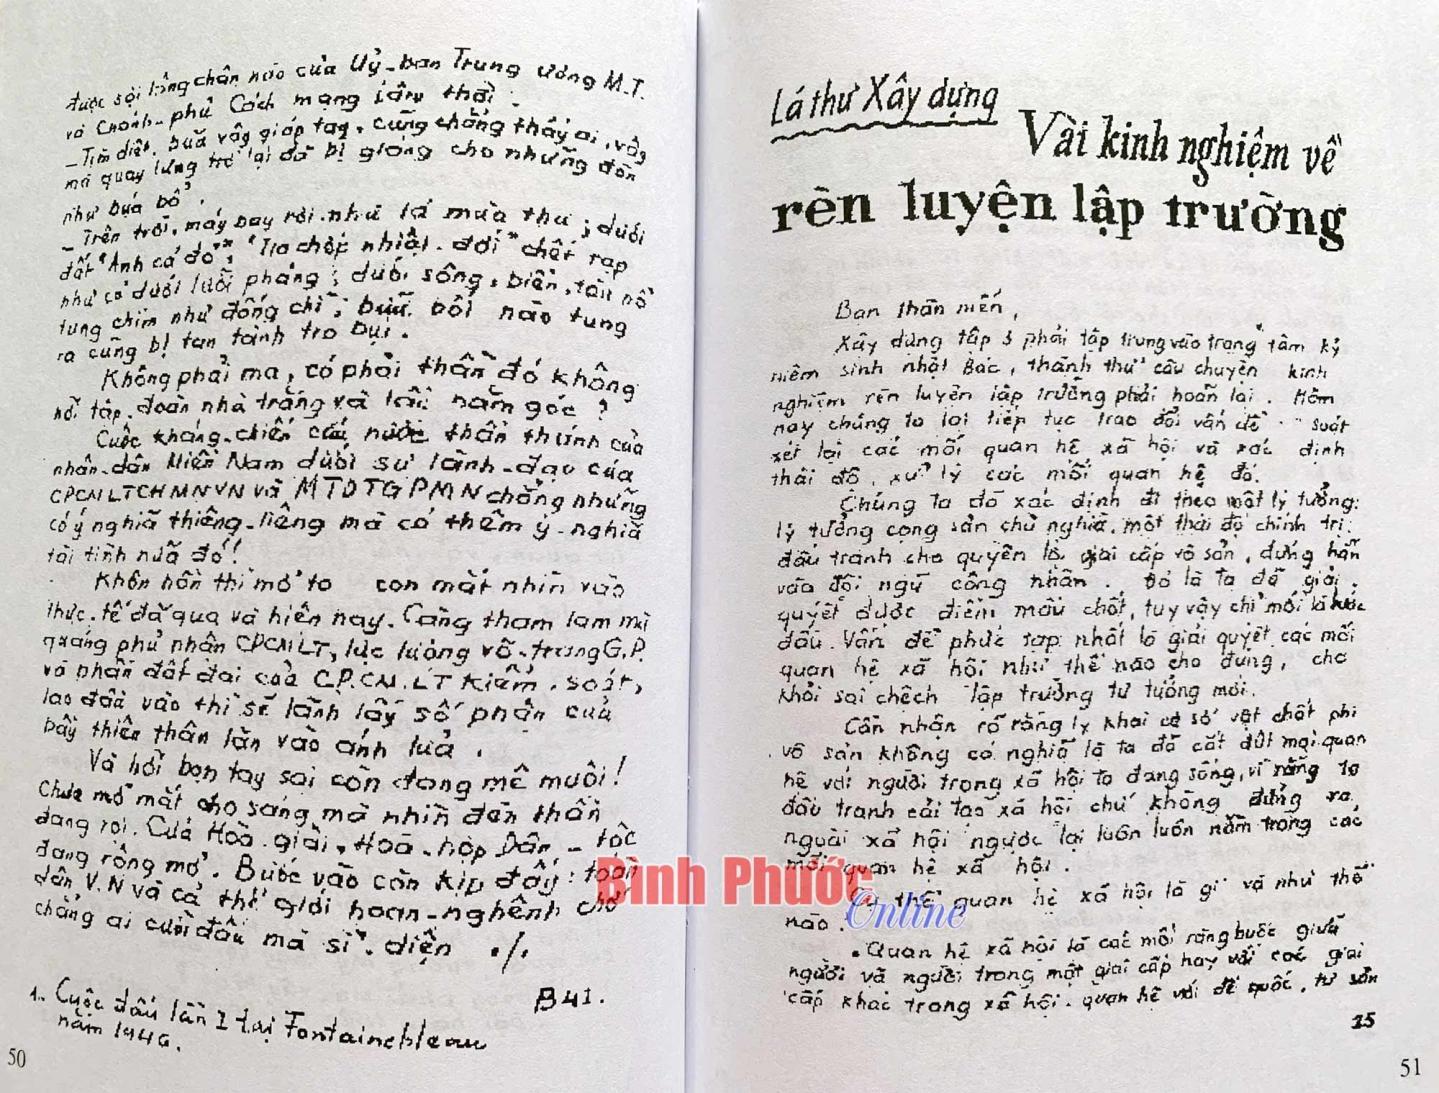 được sợi lông chân nào của Uỷ-ban Trung ương M.T.
và Chính-phủ Cách mạng Lâm thời.
-Tìm diệt, bủa vây giáp tay, cũng chẳng thấy ai, vậy
mà quay lưng trở lại đã bị giáng cho những đòn
như búa bổ.
- Trên trời, máy bay rơi như lá mùa thu; dưới
đất "Anh cả đỏ", "Tia chớp nhiệt-đới" chết rạp
như cỏ dưới lưỡi phảng; dưới sông, biển, tàu nổ
tung chìm như đống chì; bưu bối nào tung
ra cũng bị tan tành tro bụi.
Không phải ma, có phải thần đó không
hỡi tập-đoàn nhà trắng và lầu năm góc?
Cuộc kháng-chiến cứu nước thần thánh của
nhân-dân Miền Nam dưới sự lãnh-đạo của
CPCMLTCHMNVN và MTDTGPMN chẳng những
có ý nghĩa thiêng-liêng mà có thêm ý-nghĩa
tài tình nữa đó!
Khôn hồn thì mở to con mắt nhìn vào
thực-tế đã qua và hiện nay. Càng tham lam mà
quàng phủ nhận CPCMLT, lực lượng võ-trang G.P.
và phần đất đai của C.P.CM.LT Kiểm-soát,
lao đầu vào thì sẽ lãnh lấy số phận của
bầy thiêu thân lăn vào ánh lửa.
Và hỡi bọn tay sai còn đang mê muội!
Chưa mở mắt cho sáng mà nhìn đến thần
đang rơi. Cửa Hoà-giải, Hoà-hợp Dân-tộc
đang rộng mở. Bước vào còn kịp đấy: toàn
dân V.N và cả thế giới hoan-nghênh chớ
chẳng ai cười đâu mà sỉ-diện ./.
B41.
1.. Cuộc đấu lần 1 tại Fontainebleau
năm 1946.
50
Lá thư Xây dựng
Vài kinh nghiệm về
rèn luyện lập trường
Bạn thân mến,
Xây dựng tập 3 phải tập trung vào trọng tâm kỷ
niệm sinh nhật Bác, thành thử câu chuyện kinh
nghiệm rèn luyện lập trường phải hoãn lại. Hôm
nay chúng ta lại tiếp tục trao đổi vấn đề "soát
xét lại các mối quan hệ xã hội và xác định
thái độ, xử lý các mối quan hệ đó.
Chúng ta đã xác định đi theo một lý tưởng:
lý tưởng cộng sản chủ nghĩa, một thái độ chính trị:
đấu tranh cho quyền lợi giai cấp vô sản, đứng hẳn
vào đội ngũ công nhân. Đó là ta đã giải
quyết được điểm mấu chốt, tuy vậy chỉ mới là bước
đầu. Vấn đề phức tạp nhất là giải quyết các mối
quan hệ xã hội như thế nào cho đúng, cho
khỏi sai chệch lập trường tư tưởng mới.
Cần nhận rõ rằng ly khai cơ sở vật chất phi
vô sản không có nghĩa là ta đã cắt đứt mọi quan
hệ với người trong xã hội ta đang sống, vì rằng ta
đấu tranh cải tạo xã hội chứ không đứng ra
ngoài xã hội ngược lại luôn luôn nằm trong các
mối quan hệ xã hội.
Cụ thể quan hệ xã hội là gì và như thế
nào.
.Quan hệ xã hội là các mối ràng buộc giữa
người và người trong một giai cấp hay với các giai
cấp khác trong xã hội. quan hệ với đế quốc, tư sản
25
51
BÌNH PHƯỚC
Online